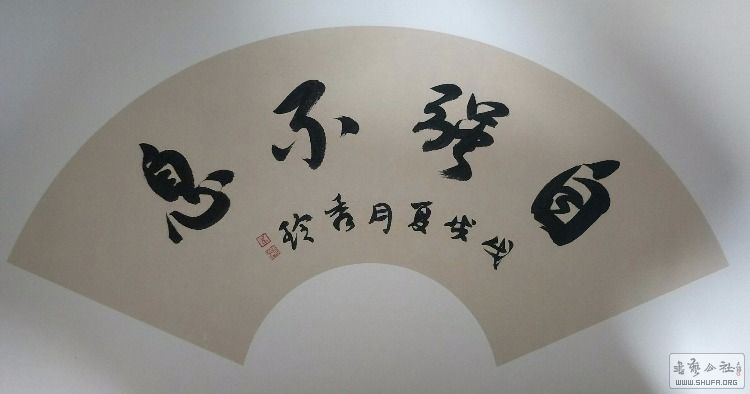 自强不息
戊戌夏月秀玲
书艺公社
WWW.SHUFA.ORG